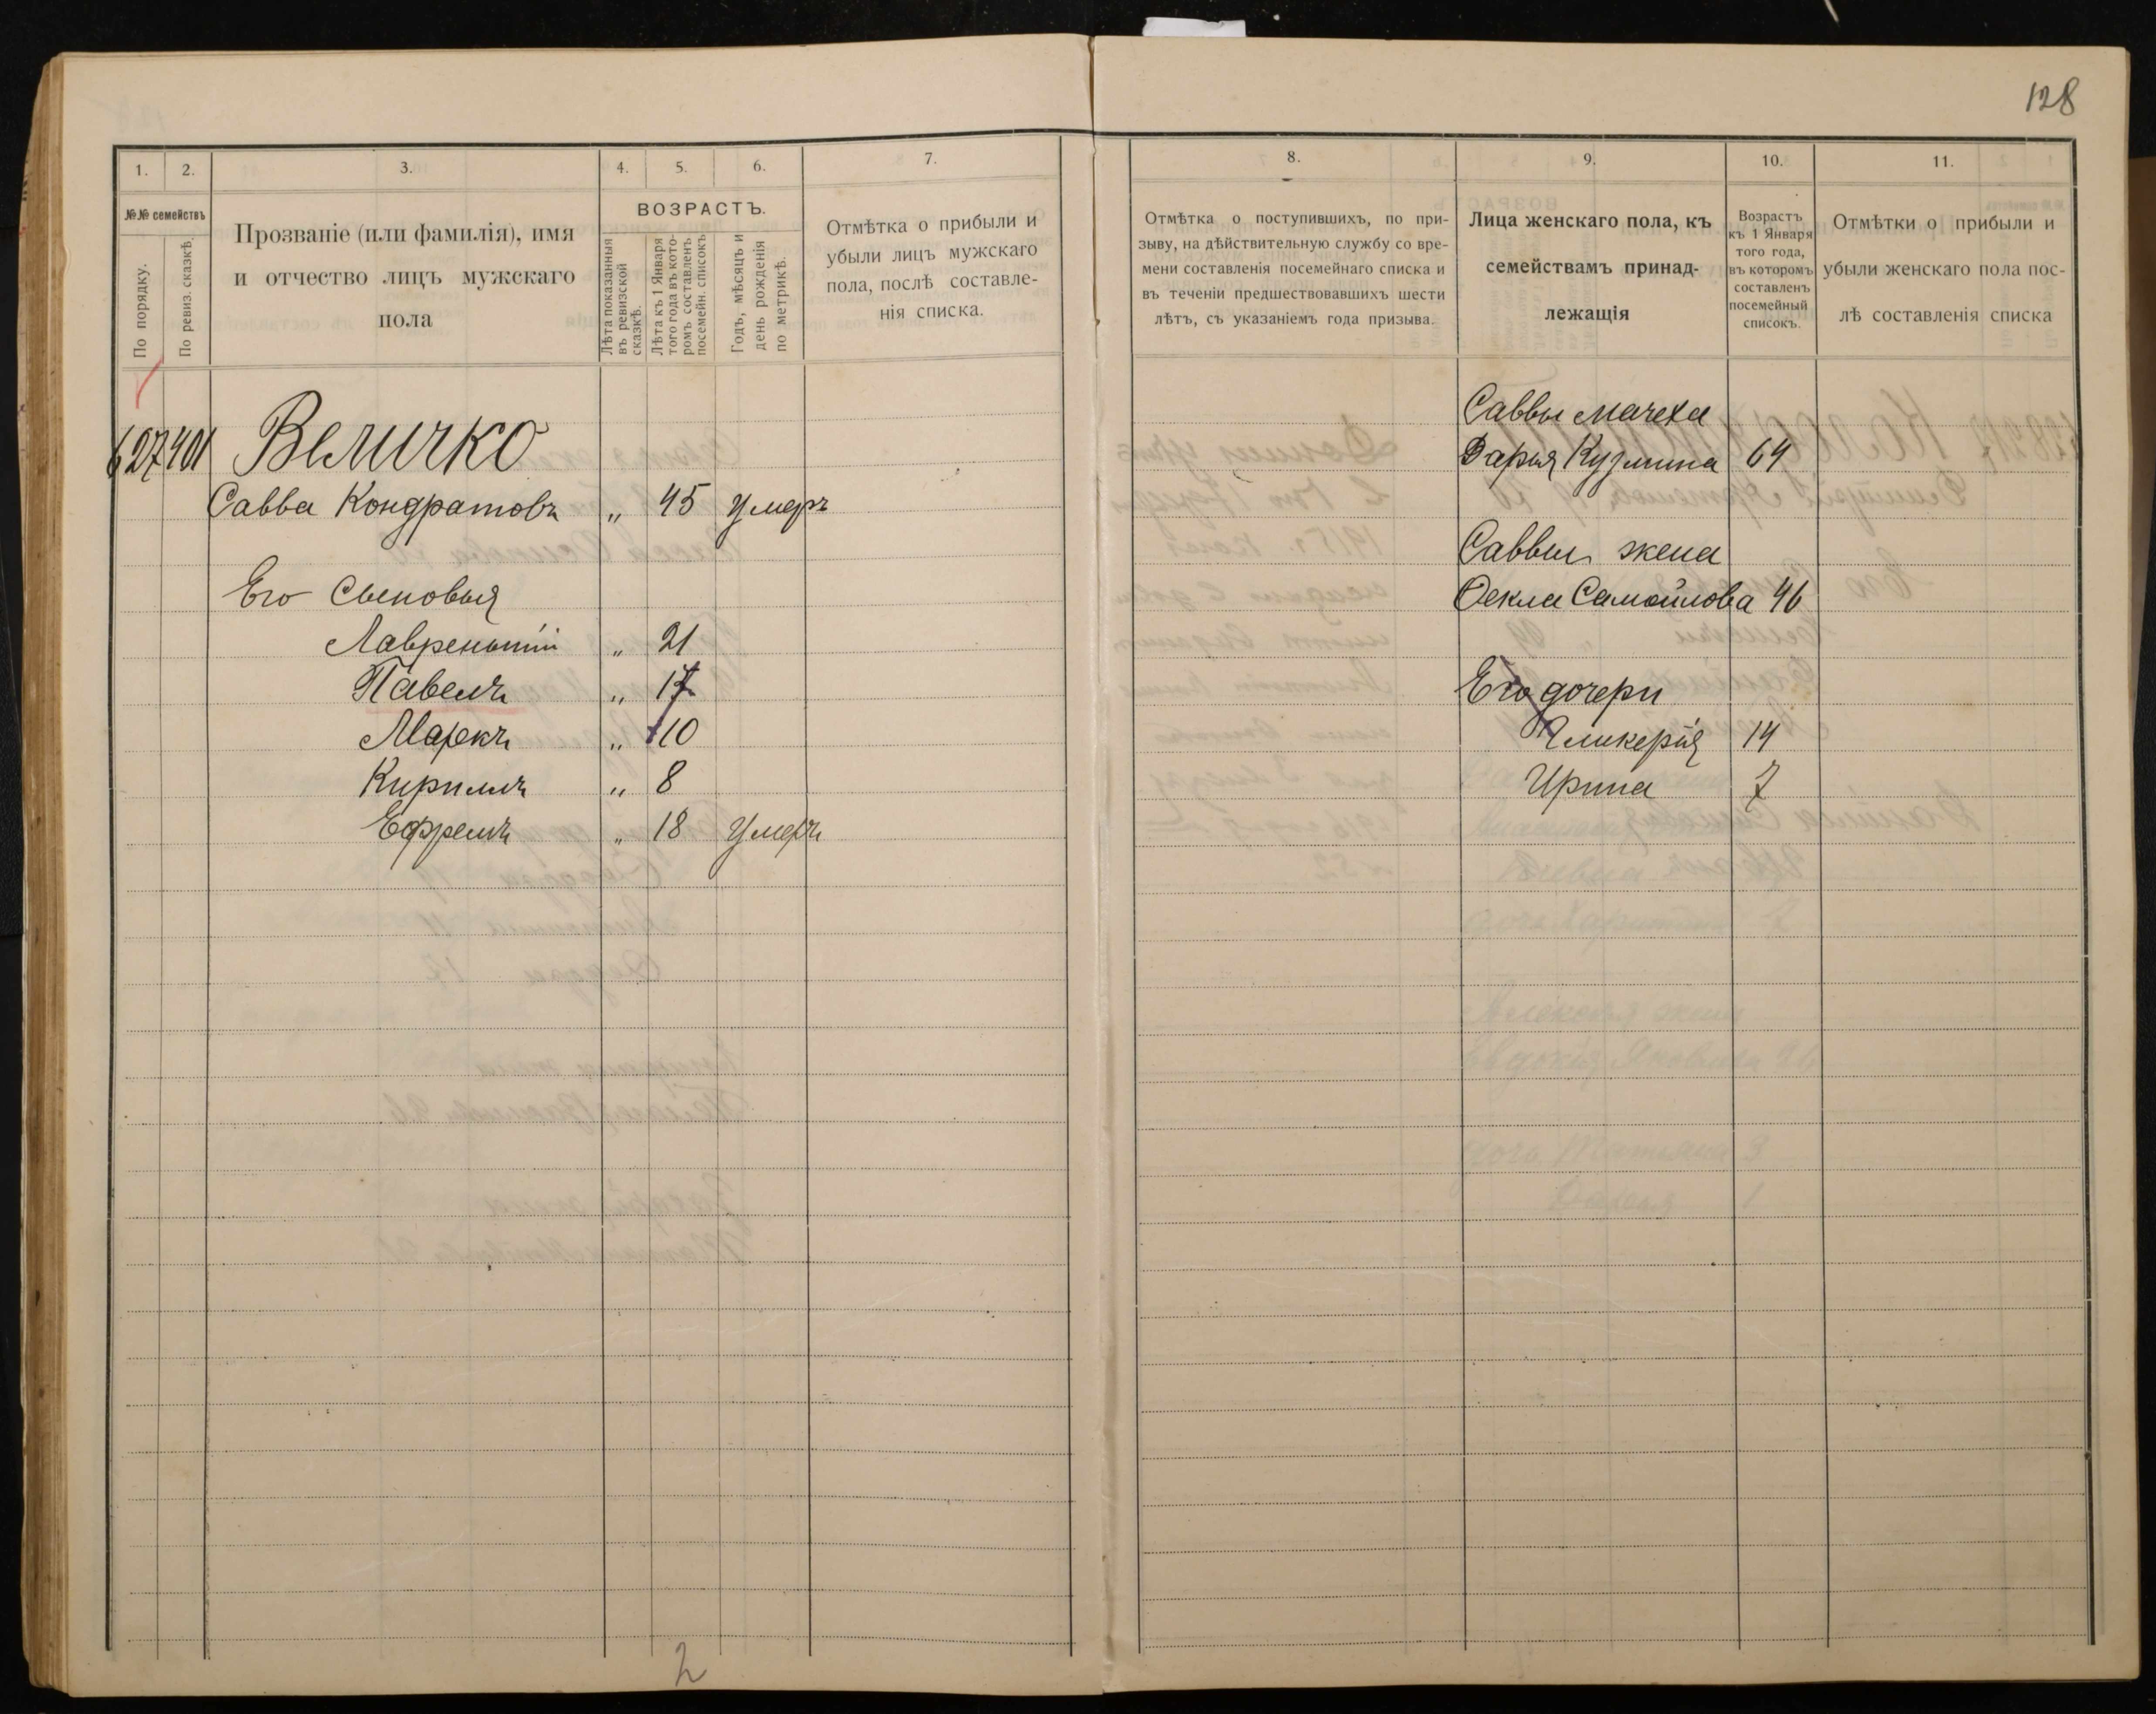 128
1.
2.
3.
4.
5.
6.
7.
№№ семействъ
По порядку.
По ревиз. сказкѣ.
Прозваніе (или фамилія), имя
и отчество лицъ мужскаго
пола
ВОЗРАСТЪ.
Лѣта показанныя
въ ревизской
сказкѣ.
Лѣта къ 1 Января
того года въ кото-
ромъ составленъ
посемейн. списокъ
Годъ, мѣсяцъ и
день рожденія
по метрикѣ.
Отмѣтка о прибыли и
убыли лицъ мужскаго
пола, послѣ составле-
нія списка.
627 401 Величко
Савва Кондратовъ „ 45 Умеръ
Его Сыновья
Лаврентій „ 21
Павелъ „ 17
Маркъ „ 10
Кириллъ „ 8
Ефремъ „ 18 Умеръ
2
8.
9.
10.
11.
Отмѣтка о поступившихъ, по при-
зыву, на дѣйствительную службу со вре-
мени составленія посемейнаго списка и
въ теченіи предшествовавшихъ шести
лѣтъ, съ указаніемъ года призыва.
Лица женскаго пола, къ
семействамъ принад-
лежащія
Возрастъ
къ 1 Января
того года,
въ которомъ
составленъ
посемейный
списокъ.
Отмѣтки о прибыли и
убыли женскаго пола пос-
лѣ составленія списка
Саввы мачеха
Дарья Кузмина 64
Саввы жена
Ѳекла Самойлова 46
Его дочери
Гликерія 14
Ирина 7